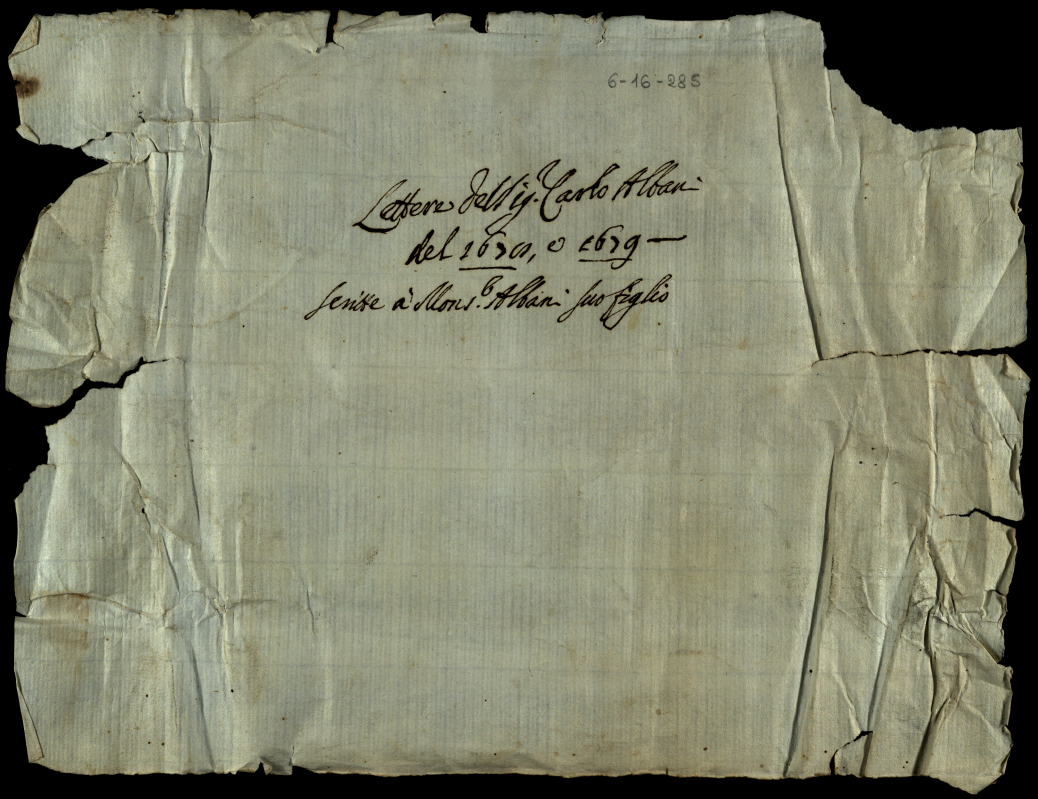 6-16-285
Lettere del Sig.r Carlo Albani
del 1678, e 1679 —
scritte à Mons.r Albani suo figlio